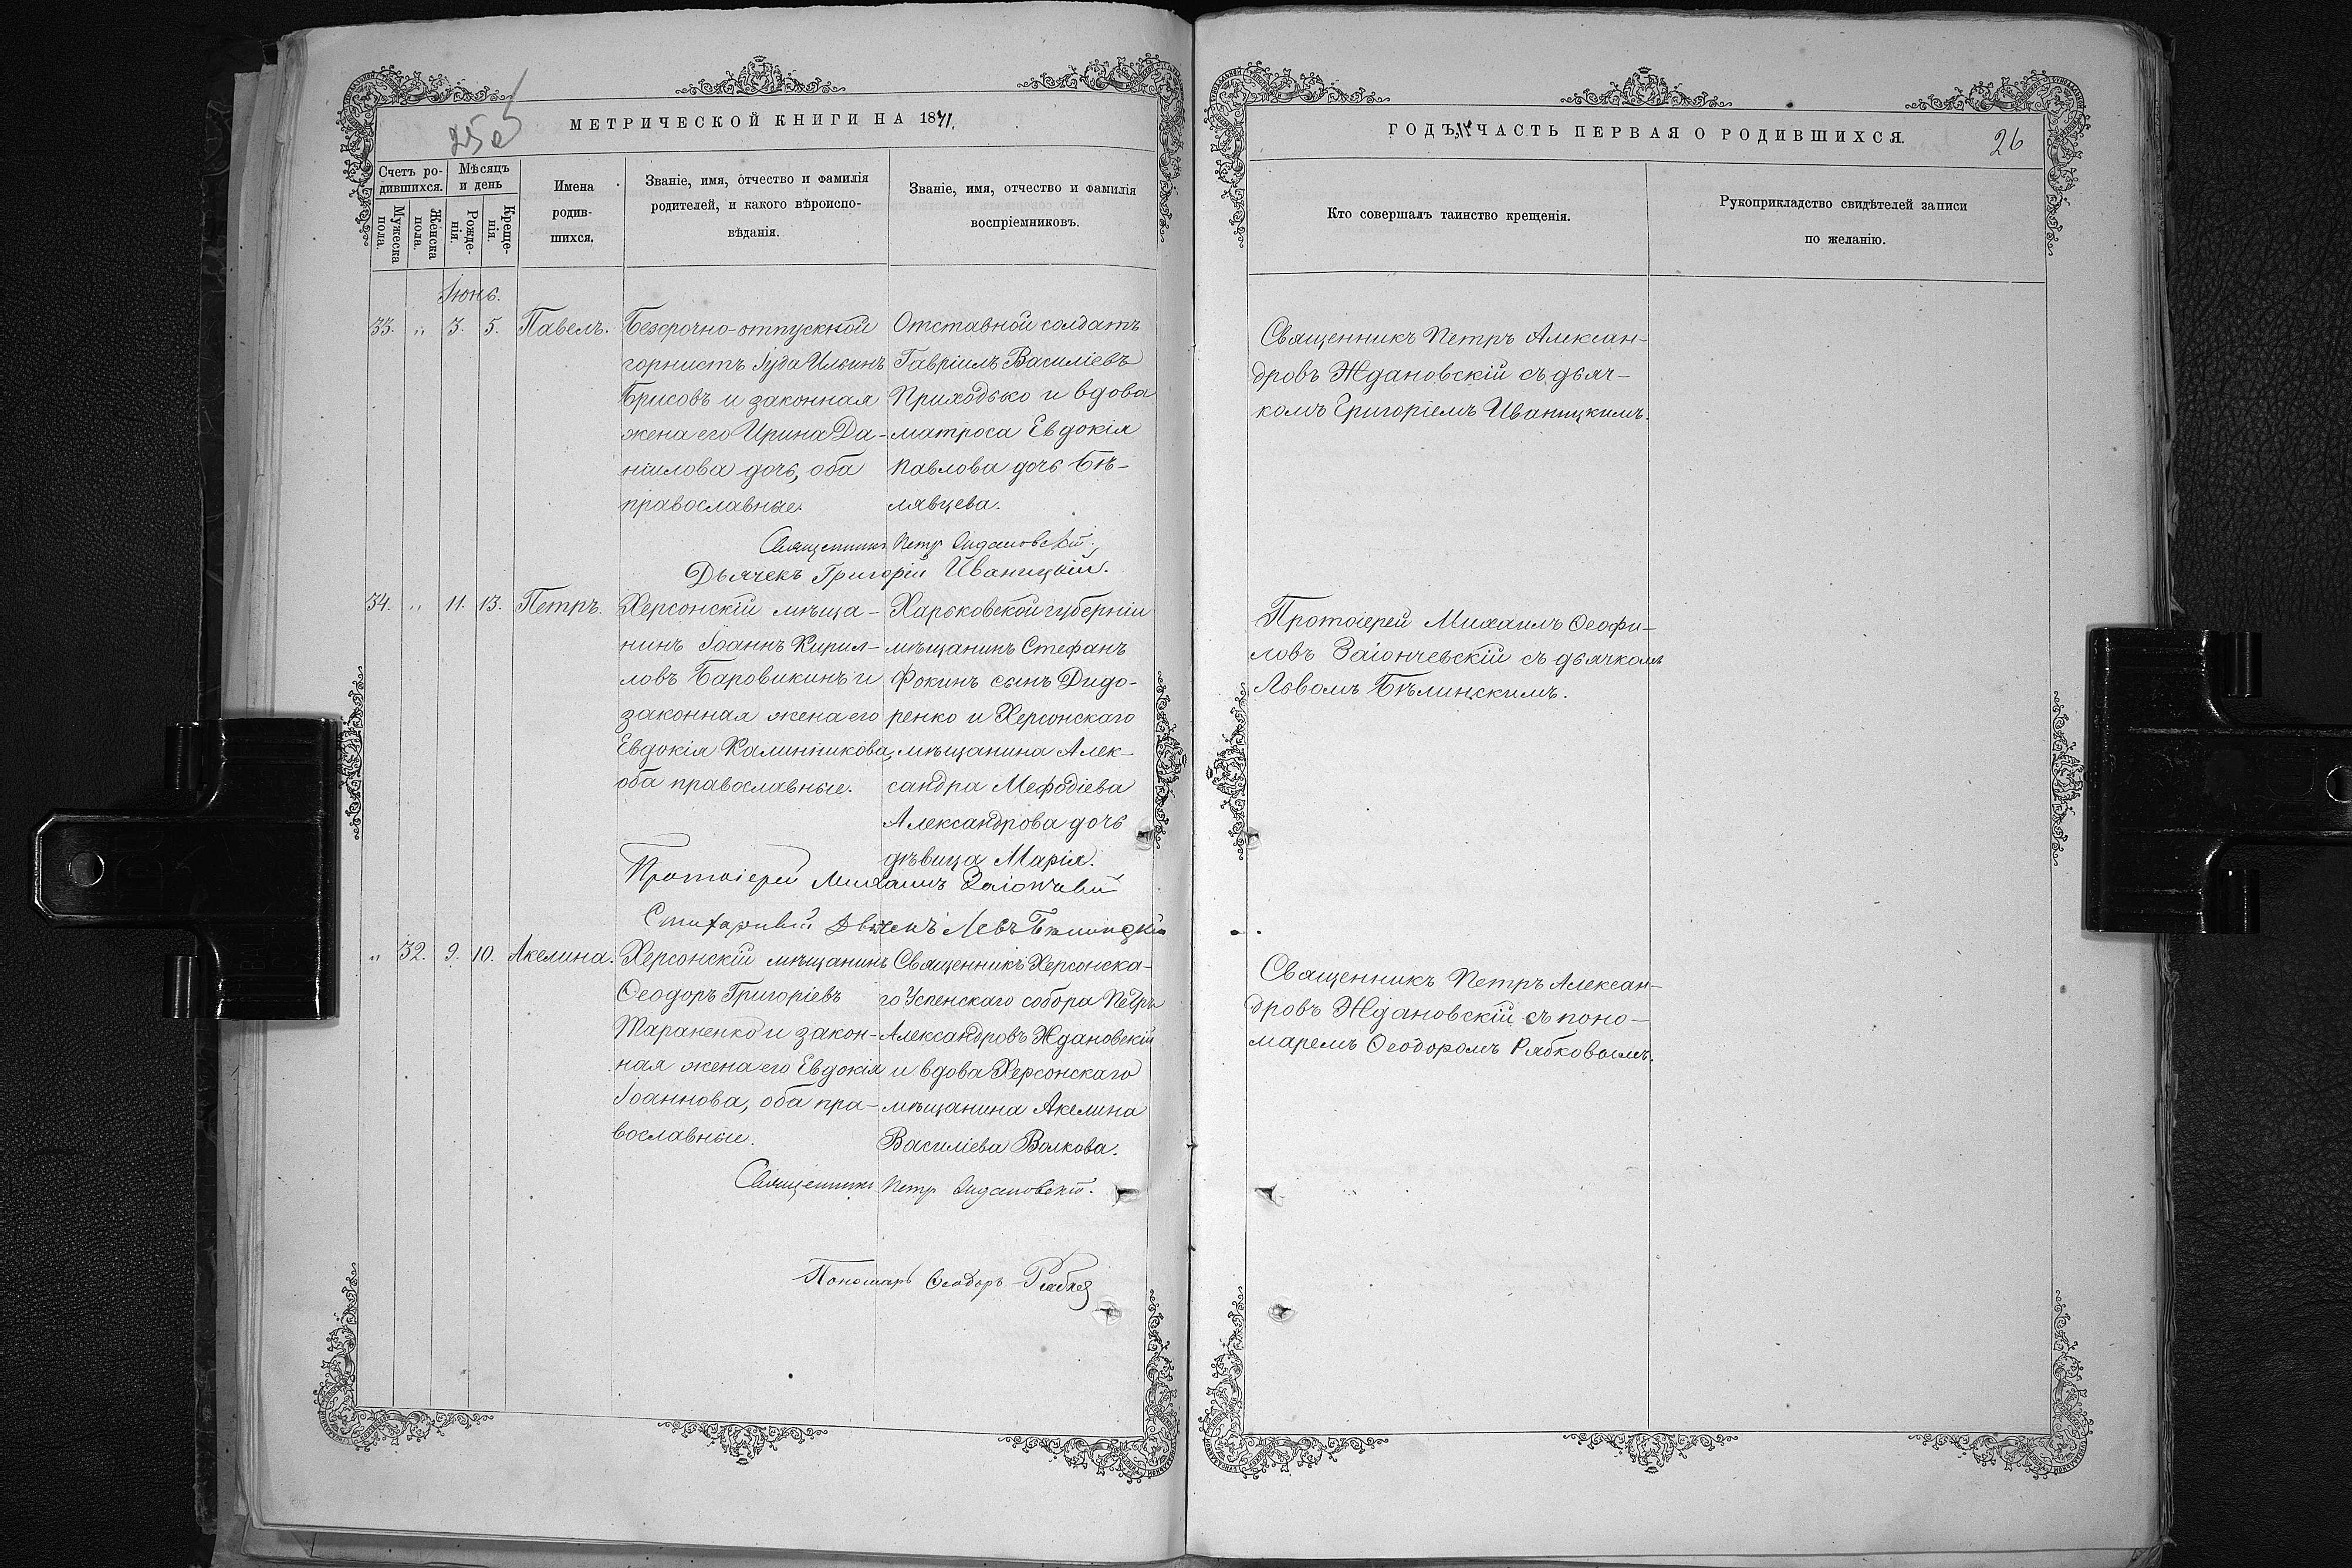 25 об
МЕТРИЧЕСКОЙ КНИГИ НА 1871.
Счетъ ро-
дившихся.
Мѣсяцъ
и день
Мужеска
пола.
Женска
пола.
Рожде-
нія.
Креще-
нія.
Имена
родив-
шихся.
Званіе, имя, отчество и фамилія
родителей, и какого вѣроиспо-
вѣданія.
Званіе, имя, отчество и фамилія
воспріемниковъ.
Іюнь.
33. „ 3. 5. Павелъ.
Безсрочно-отпускной
горнистъ Іуда Ильинъ
Брисовъ и законная
жена его Ирина Да-
ніилова дочь, оба
православные.
Отставной солдатъ
Гавріилъ Василіевъ
Приходько и вдова
матроса Евдокія
Павлова дочь Бѣ-
лявцева.
Священникъ Петръ Ждановскій.
Дьячекъ Григорій Иваницкій.
34. „ 11. 13. Петръ.
Херсонскій мѣща-
нинъ Іоаннъ Кирил-
ловъ Баровикинъ и
законная жена его
Евдокія Калинникова,
оба православные.
Харьковской губерніи
мѣщанинъ Стефанъ
Фокинъ сынъ Дидо-
ренко и Херсонскаго
мѣщанина Алек-
сандра Мефодіева
Александрова дочь
дѣвица Марія.
Протоіерей Михаилъ
Стихарный Дьячекъ Левъ
„ 32. 9. 10. Акелина.
Херсонскій мѣщанинъ
Ѳеодоръ Григоріевъ
Тараненко и закон-
ная жена его Евдокія
Іоаннова, оба пра-
вославные.
Священникъ Херсонска-
го Успенскаго собора Петръ
Александровъ Ждановскій
и вдова Херсонскаго
мѣщанина Акелина
Василіева Волкова.
Священникъ Петръ Ждановскій.
Пономарь Ѳеодоръ Рябков
ГОДЪ, ЧАСТЬ ПЕРВАЯ О РОДИВШИХСЯ.
26
Кто совершалъ таинство крещенія.
Рукоприкладство свидѣтелей записи
по желанію.
Священникъ Петръ Алексан-
дровъ Ждановскій съ дьяч-
комъ Григоріемъ Иваницкимъ.
Протоіерей Михаилъ Ѳеофи-
ловъ Заіончевскій съ дьячкомъ
Львомъ Бѣлинскимъ.
Священникъ Петръ Алексан-
дровъ Ждановскій съ поно-
маремъ Ѳеодоромъ Рябковымъ.